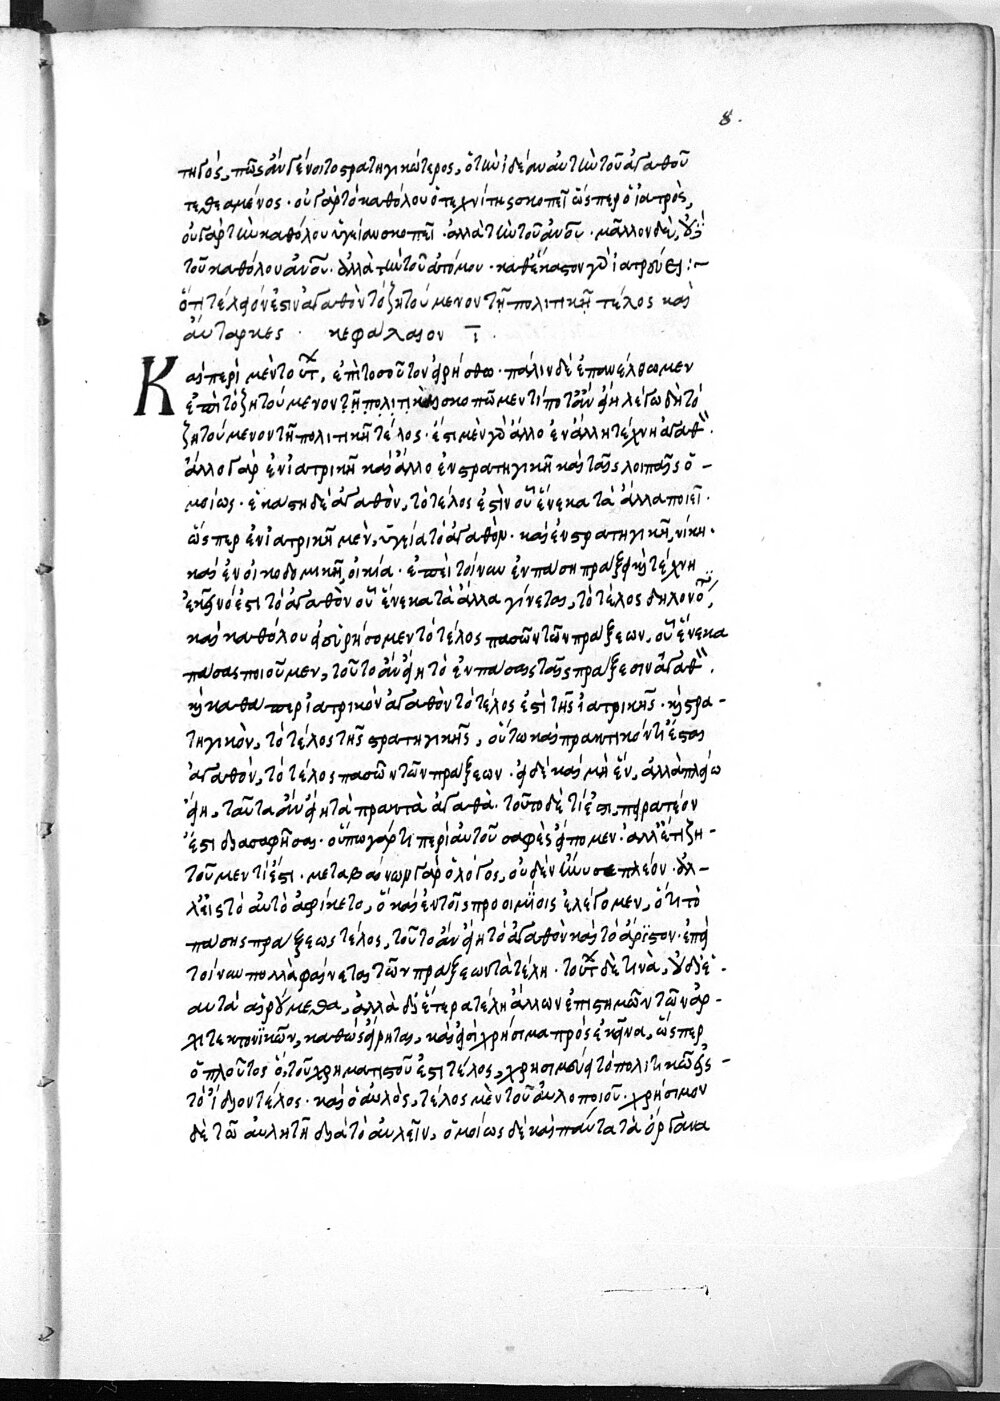 8.
τηγὸς, πῶς ἂν γένοιτο στρατηγικώτερος, ὁ τὴν ἰδέαν αὐτὴν τοῦ ἀγαθοῦ
τεθεαμένος · οὐ γὰρ τὸ καθόλου ὁ τεχνίτης σκοπεῖ ὥσπερ ὁ ἰατρὸς,
οὐ γὰρ τὴν καθόλου ὑγείαν σκοπεῖ · ἀλλὰ τὴν τοῦ ἀνου · μᾶλλον δὲ, οὐ
τοῦ καθόλου ἀνου · ἀλλὰ τὴν τοῦ ἀτόμου · καθέκαστον γὰρ ἰατρεύει :~
ὅτι τέλειόν ἐστιν ἀγαθὸν τὸ ζητούμενον τῇ πολιτικῇ τέλος καὶ
αὔταρκες · κεφάλαιον ι .
Καὶ περὶ μὲν τούτ, ἐπὶ τοσοῦτον εἰρήσθω · πάλιν δὲ ἐπανέλθωμεν
ἐπὶ τὸ ζητούμενον τῇ πολιτικῇ καὶ σκοπῶμεν τί ποτ' ἂν εἴη λέγω δὴ τὸ
ζητούμενον τῇ πολιτικῇ τέλος · ἔστι μὲν γὰρ ἄλλο ἐν ἄλλῃ τέχνῃ ἀγαθ ·
ἄλλο γὰρ ἐν ἰατρικῇ καὶ ἄλλο ἐν στρατηγικῇ καὶ ταῖς λοιπαῖς ὁ -
μοίως · ἑκάστη δὲ ἀγαθὸν, τὸ τέλος ἐστὶν οὗ ἕνεκα τὰ ἄλλα ποιεῖ ·
ὥσπερ ἐν ἰατρικῇ μὲν, ὑγεία τὸ ἀγαθὸν · καὶ ἐν στρατηγικῇ, νίκη ·
καὶ ἐν οἰκοδομικῇ, οἰκία · ἐπεὶ τοίνυν ἐν πάσῃ πράξει καὶ τέχνῃ
ἐκεῖνό ἐστι τὸ ἀγαθὸν οὗ ἕνεκα τὰ ἄλλα γίνεται, τὸ τέλος δηλονό,
καὶ καθόλου εἰ εὑρήσομεν τὸ τέλος πασῶν τῶν πράξεων, οὗ ἕνεκα
πάσας ποιοῦμεν, τοῦτο ἂν εἴη τὸ ἐν πάσαις ταῖς πράξεσιν ἀγαθ ·
καὶ καθάπερ ἰατρικὸν ἀγαθὸν τὸ τέλος ἐστὶ τῆς ἰατρικῆς · καὶ στρα -
τηγικὸν, τὸ τέλος τῆς στρατηγικῆς, οὕτω καὶ πρακτικόν τι ἔσται
ἀγαθὸν, τὸ τέλος πασῶν τῶν πράξεων · εἰ δὲ καὶ μὴ ἓν, ἀλλὰ πλείω
εἴη, ταῦτα ἂν εἴη τὰ πρακτὰ ἀγαθὰ · τοῦτο δὲ τί ἐστι, πειρατέον
ἔτι διασαφῆσαι · οὔπω γάρ τι περὶ αὐτοῦ σαφὲς εἴπομεν · ἀλλ' ἔτι ζη -
τοῦμεν τί ἐστι · μεταβαίνων γὰρ ὁ λόγος, οὐδὲν ἤνυσε πλέον · ἀλ -
λ' εἰς τὸ αὐτὸ ἀφίκετο, ὃ καὶ ἐν τοῖς προοιμίοις ἐλέγομεν, ὅτι τὸ
πάσης πράξεως τέλος, τοῦτο ἂν εἴη τὸ ἀγαθὸν καὶ τὸ ἄριστον · ἐπεὶ
τοίνυν πολλὰ φαίνεται τῶν πράξεων τὰ τέλη · τούτ δὲ τινὰ, οὐ δι' ἑ -
αυτὰ αἱρούμεθα, ἀλλὰ δι' ἕτερα τέλη ἄλλων ἐπιστημῶν τῶν ἀρ -
χιτεκτονικῶν, καθὼς εἴρηται, καὶ εἰσὶ χρήσιμα πρὸς ἐκεῖνα, ὥσπερ
ὁ πλοῦτος ὃ, τοῦ χρηματιστοῦ ἐστὶ τέλος, χρησιμεύει τῷ πολιτικῷ εἰς -
τὸ ἴδιον τέλος · καὶ ὁ αὐλὸς, τέλος μὲν τοῦ αὐλοποιοῦ · χρήσιμον
δὲ τῷ αὐλητῇ διὰ τὸ αὐλεῖν, ὁμοίως δὲ καὶ πάντα τὰ ὄργανα